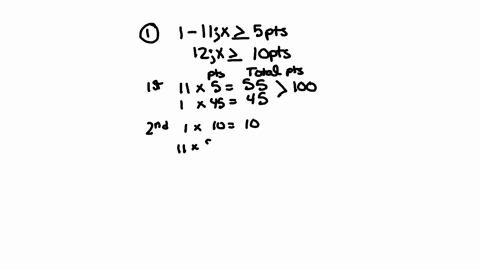 ① 1-11; x ≥ 5pts
12; x ≥ 10pts
pts Total pts
1st 11 x 5 = 55 > 100
1 x 45 = 45
2nd 1 x 10 = 10
11 x